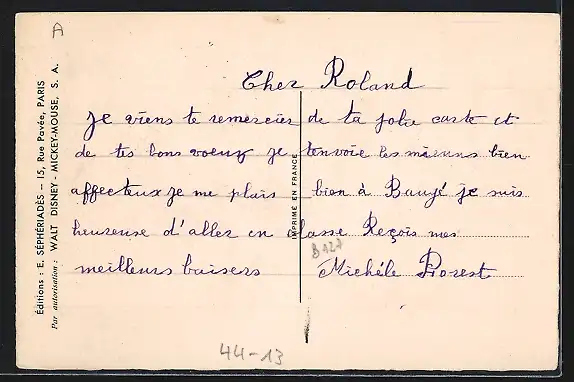 A
Éditions : E. SÉPHÉRIADÈS — 15, Rue Pavée, PARIS
Par autorisation : WALT DISNEY - MICKEY-MOUSE, S. A.
Cher Roland
Je viens te remercier de ta jolie carte et
de tes bons voeux je tenvoie les mieuns bien
affecteux je me plais bien à Baugé je suis
heureuse d'aller en classe Reçois mes
meilleurs baisers Michéle
IMPRIMÉ EN FRANCE
44-13